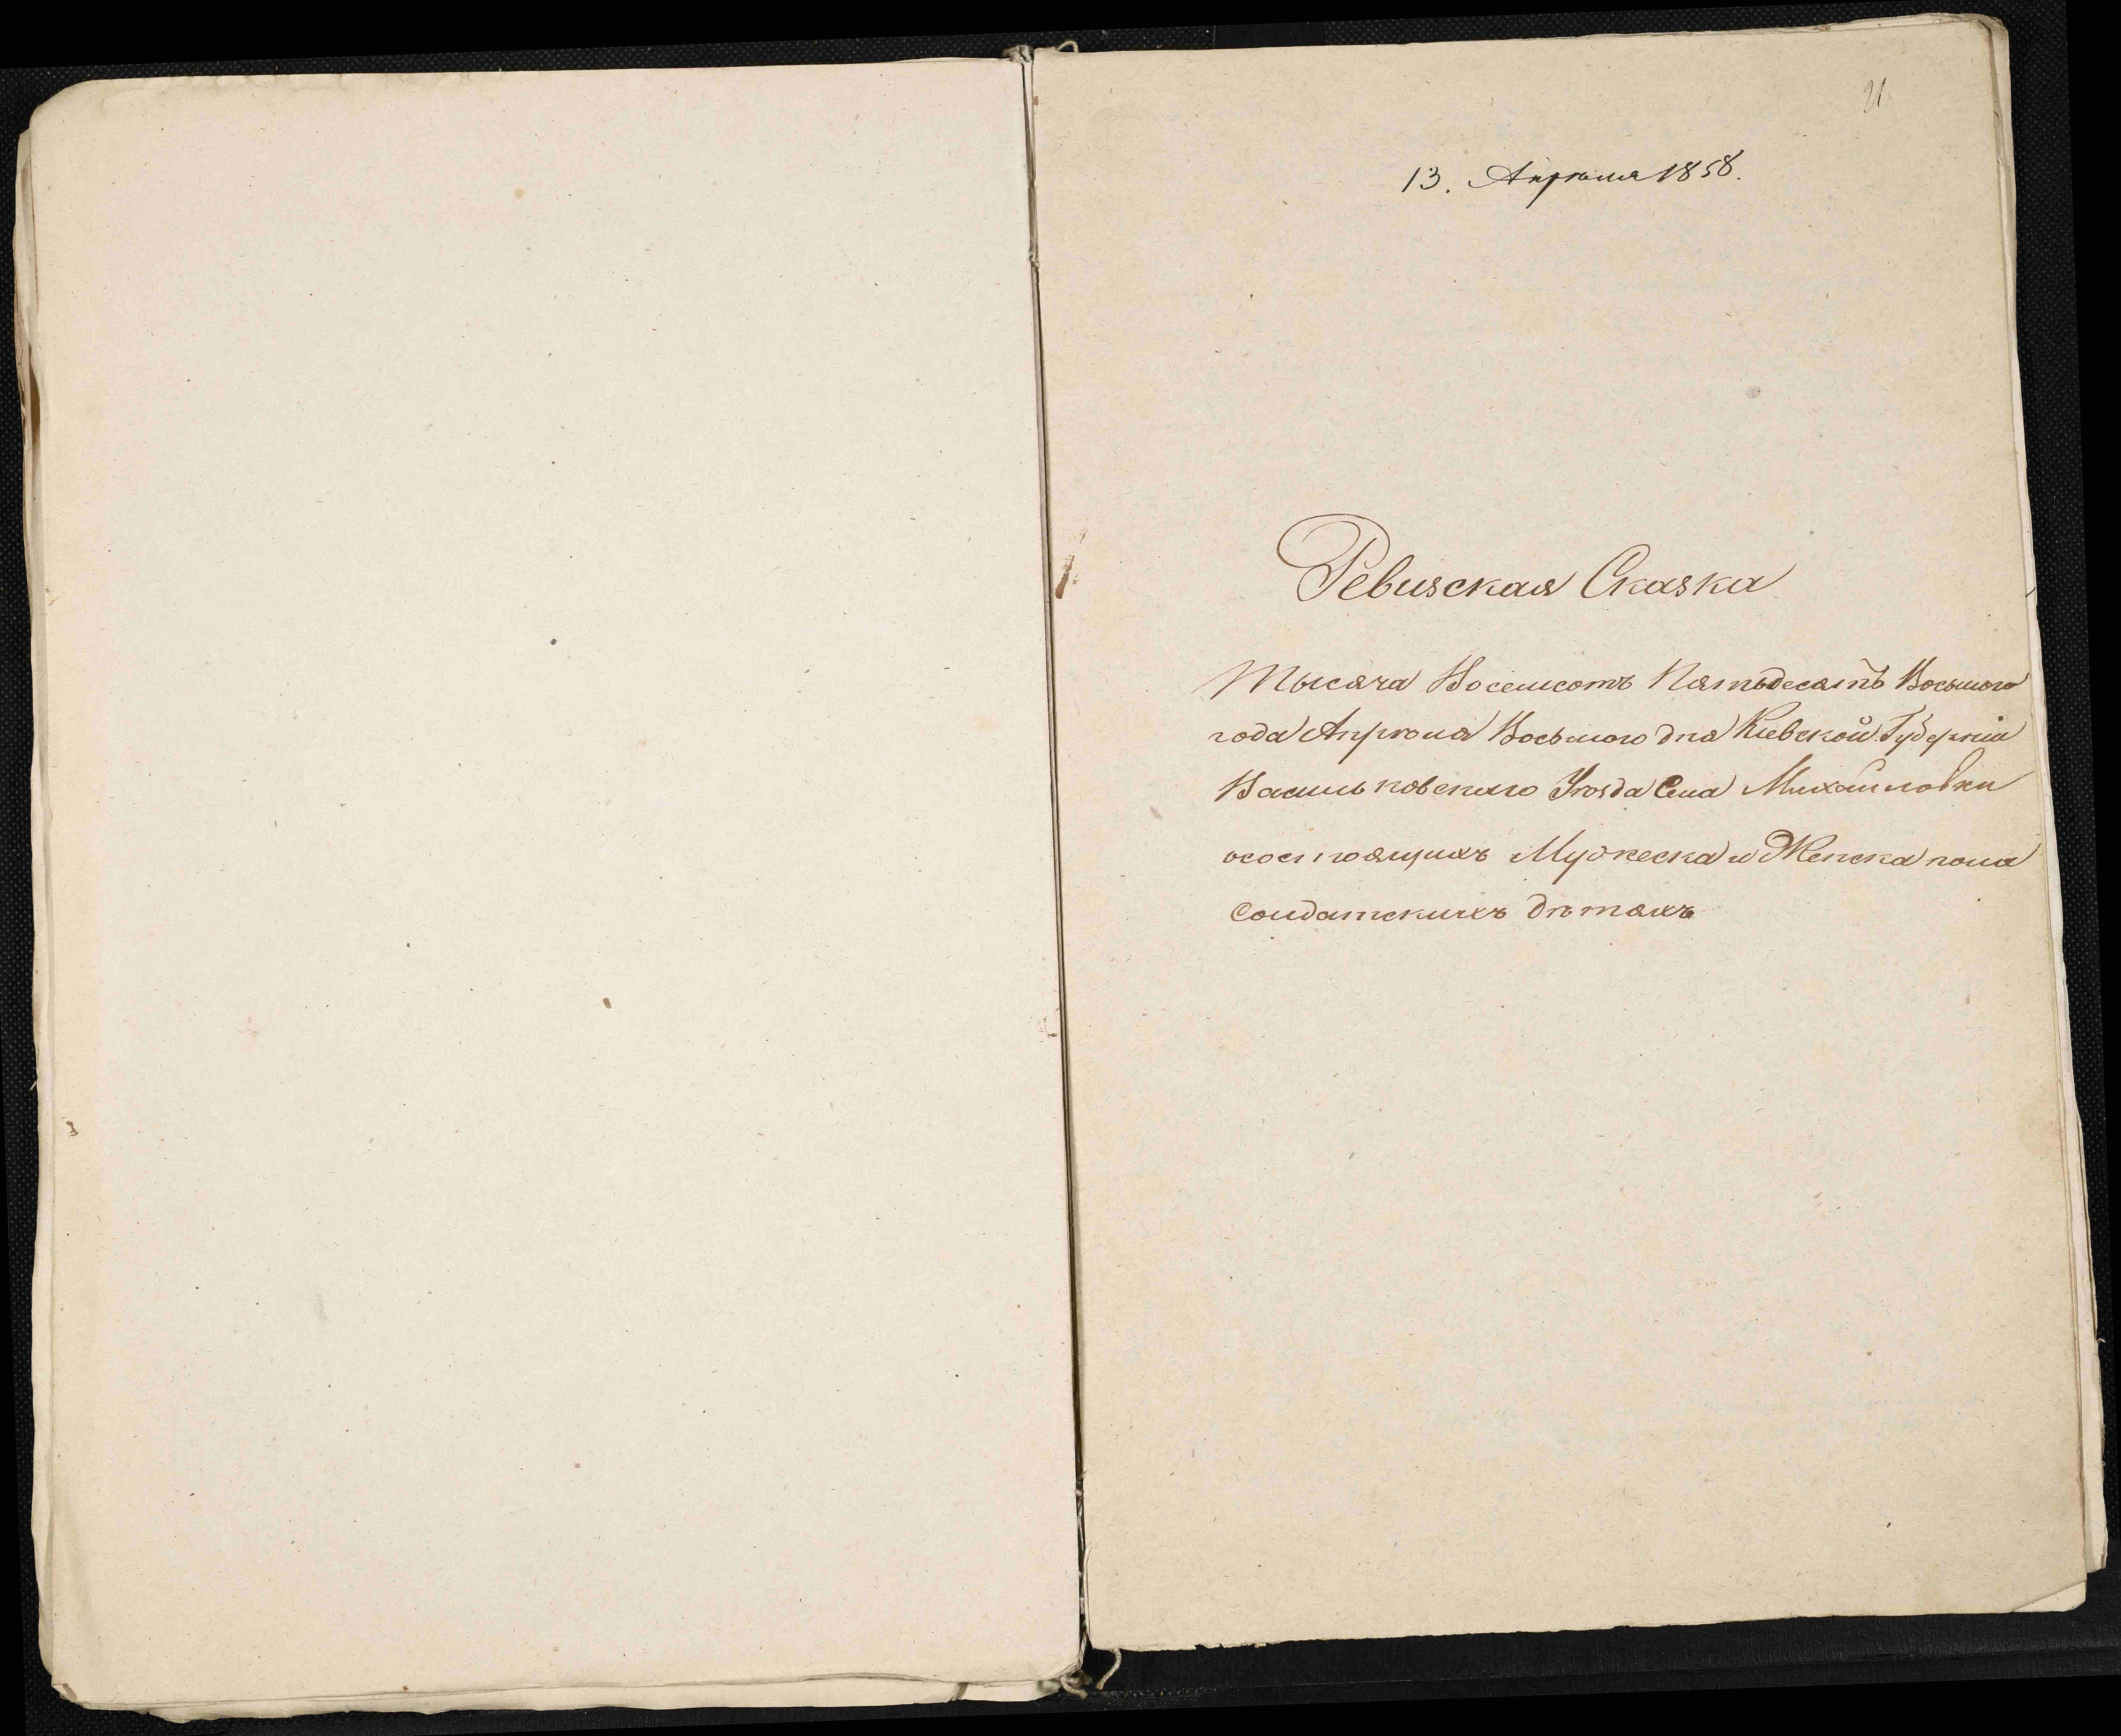 21
13. Апрѣля 1858.
Ревизская Сказка
Тысяча Восемсотъ Пятьдесятъ Восьмого
года Апрѣля Восьмого дня Кіевской Губерніи
Васильковского Уѣзда Села Михайловки
осостоящихъ Мужеска и Женска пола
Солдатскихъ дѣтяхъ